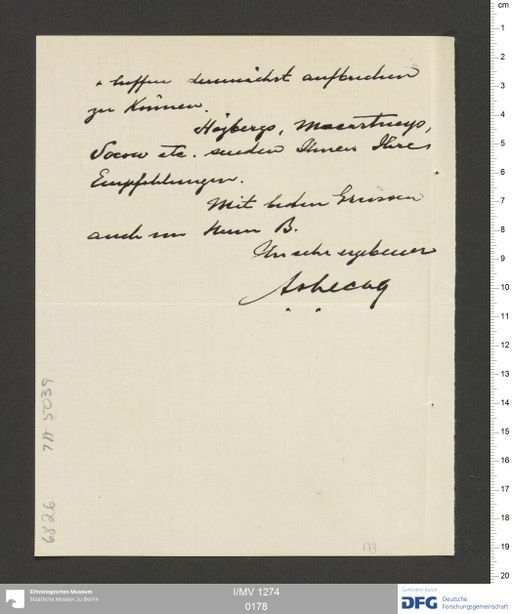 u. hoffen demnächst aufbrechen
zu können.
Högbergs, Macartneys,
etc. senden Ihnen Ihre
Empfehlungen.
Mit besten Grüssen
auch an Herrn B.
Ihr sehr ergebener
6826 7A 5039
173
Ethnologisches Museum
Staatliche Museen zu Berlin
I/MV 1274
0178
Gefördert durch
DFG Deutsche
Forschungsgemeinschaft
cm
1
2
3
4
5
6
7
8
9
10
11
12
13
14
15
16
17
18
19
20